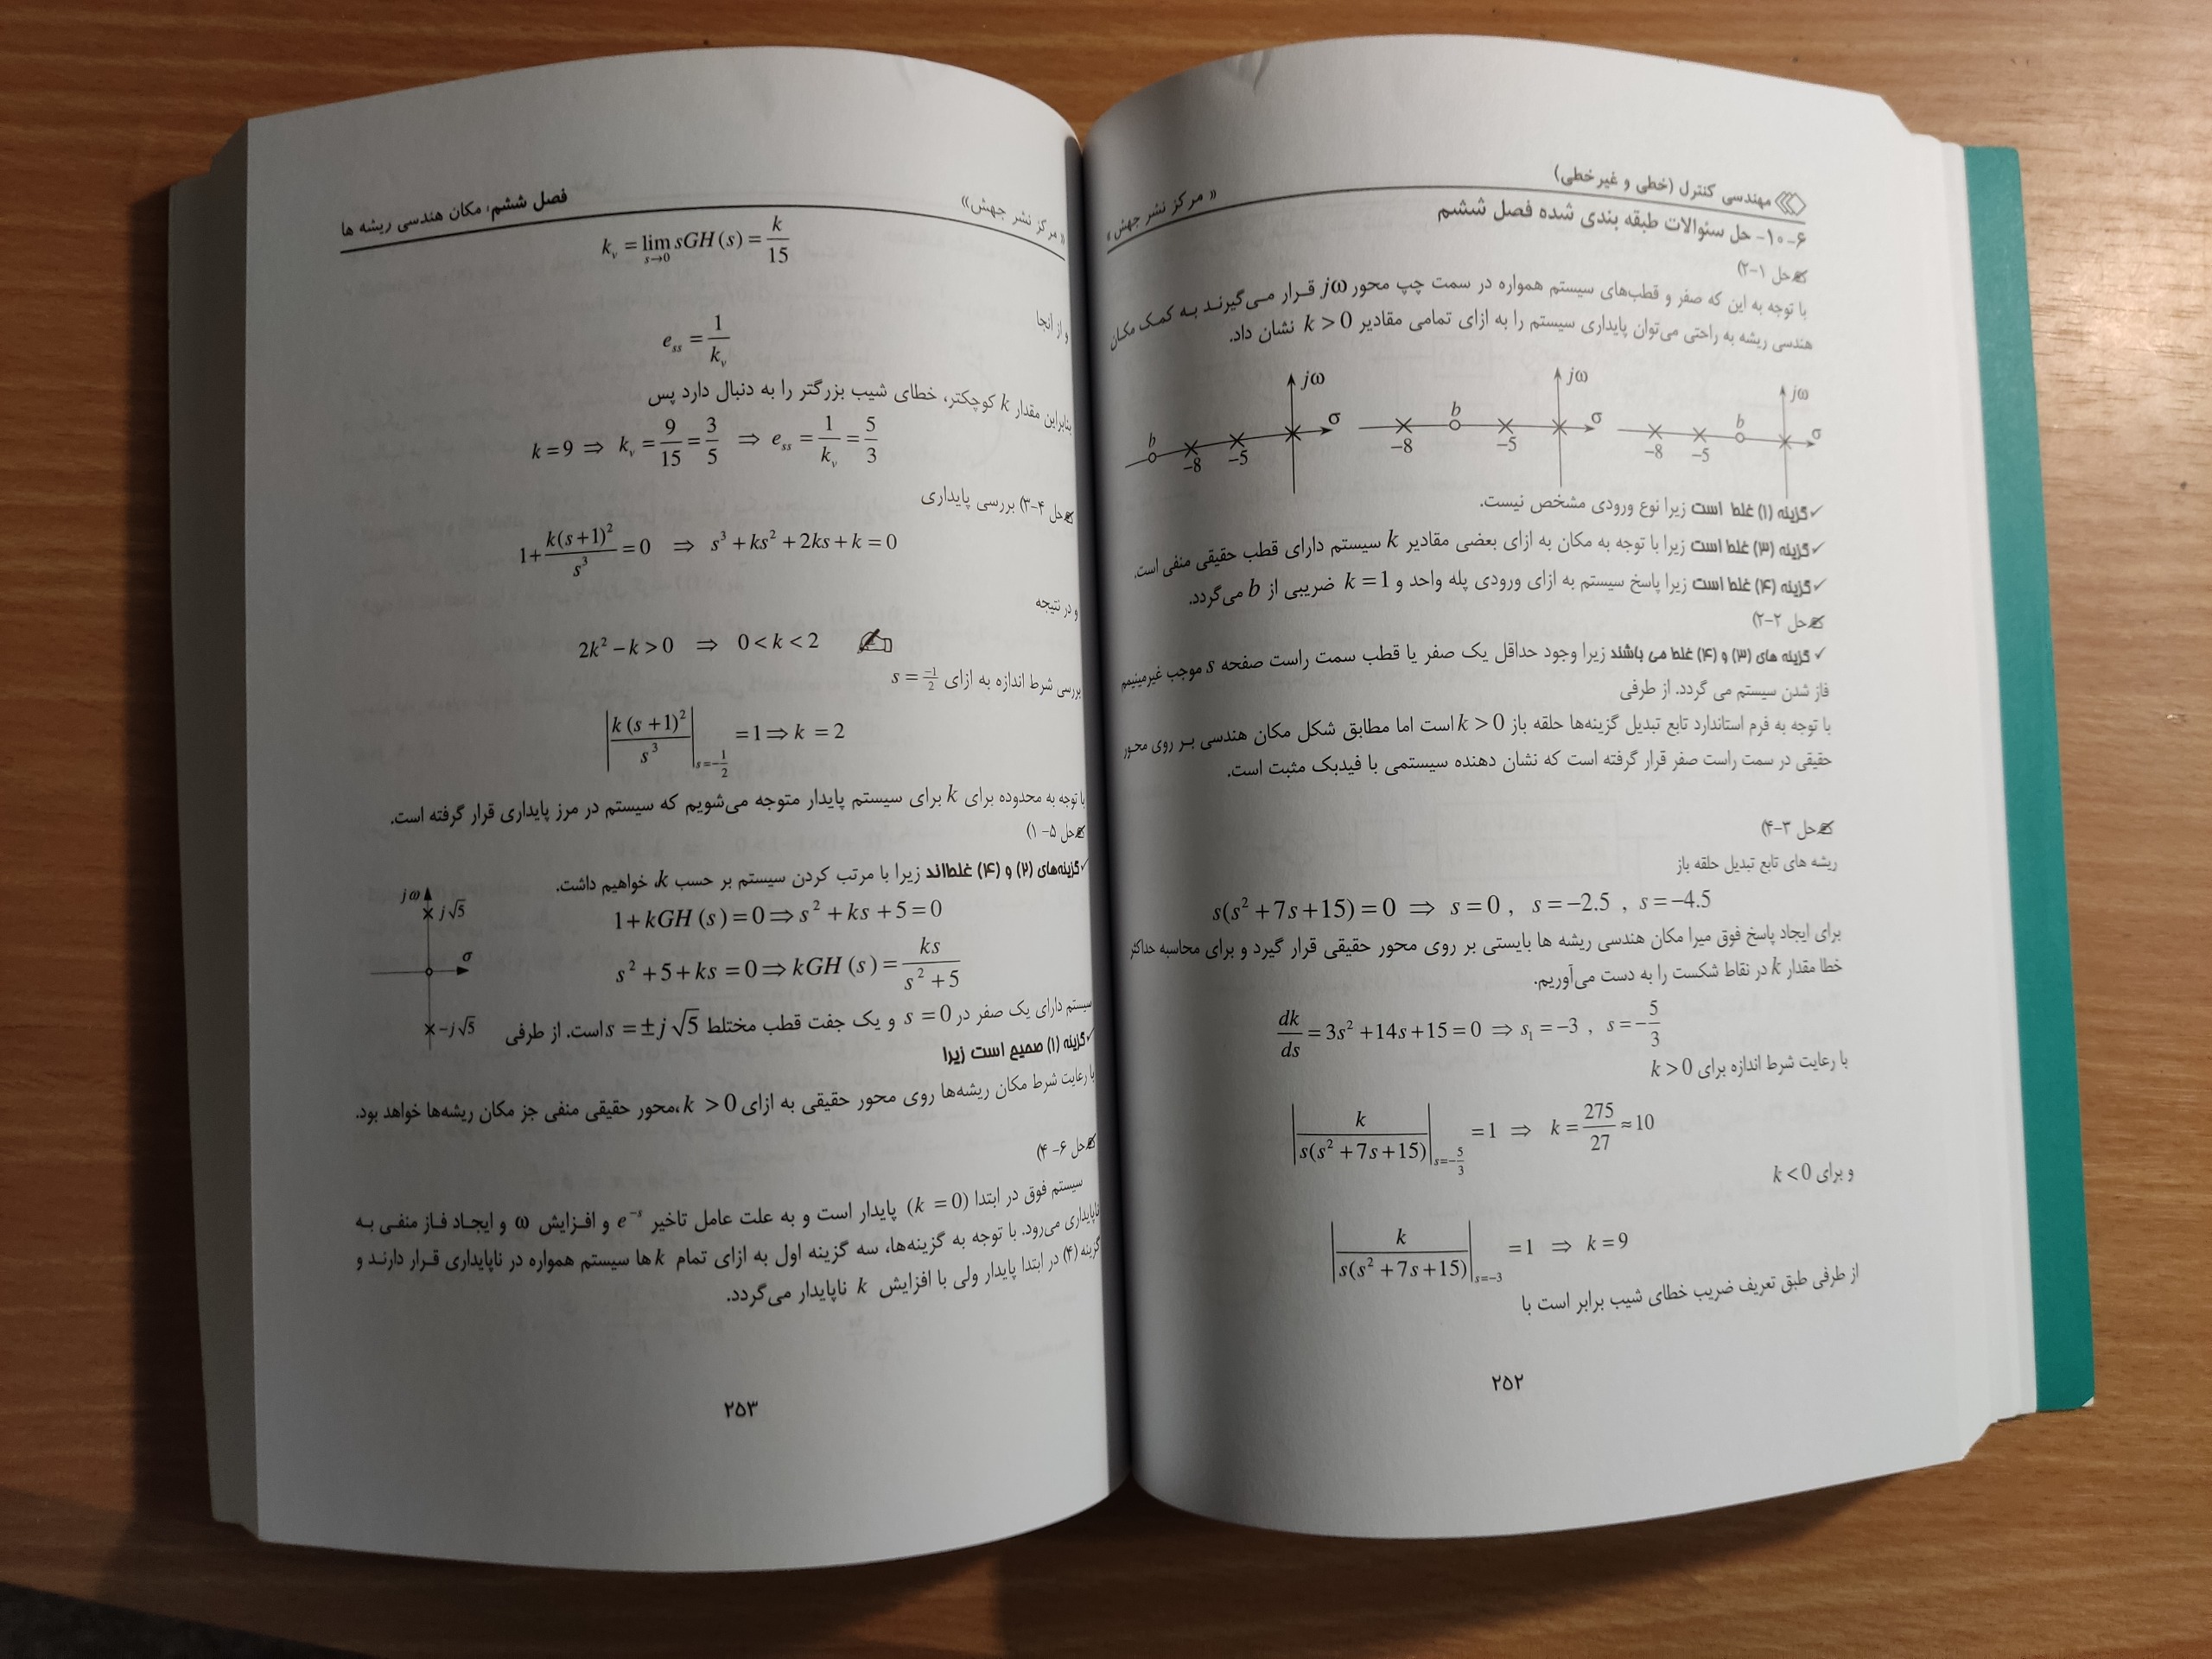 مهندسی کنترل (خطی و غیرخطی)
« مرکز نشر جهش »
۶-۱۰- حل سئوالات طبقه بندی شده فصل ششم
حل ۱-۲)
با توجه به این که صفر و قطب‌های سیستم همواره در سمت چپ محور jω قرار می‌گیرند به کمک مکان
هندسی ریشه به راحتی می‌توان پایداری سیستم را به ازای تمامی مقادیر k > 0 نشان داد.
jω σ b -8 -5
jω σ -8 b -5
jω σ -8 -5 b
✓گزینه (۱) غلط است زیرا نوع ورودی مشخص نیست.
✓گزینه (۳) غلط است زیرا با توجه به مکان به ازای بعضی مقادیر k سیستم دارای قطب حقیقی منفی است.
✓گزینه (۴) غلط است زیرا پاسخ سیستم به ازای ورودی پله واحد و k = 1 ضریبی از b می‌گردد.
حل ۲-۲)
✓ گزینه های (۳) و (۴) غلط می باشند زیرا وجود حداقل یک صفر یا قطب سمت راست صفحه s موجب غیرمینیمم
فاز شدن سیستم می گردد. از طرفی
با توجه به فرم استاندارد تابع تبدیل گزینه‌ها حلقه باز k > 0 است اما مطابق شکل مکان هندسی بر روی محور
حقیقی در سمت راست صفر قرار گرفته است که نشان دهنده سیستمی با فیدبک مثبت است.
حل ۳-۴)
ریشه های تابع تبدیل حلقه باز
s(s² + 7s + 15) = 0 ⇒ s = 0 , s = -2.5 , s = -4.5
برای ایجاد پاسخ فوق میرا مکان هندسی ریشه ها بایستی بر روی محور حقیقی قرار گیرد و برای محاسبه حداکثر
خطا مقدار k در نقاط شکست را به دست می‌آوریم.
dk/ds = 3s² + 14s + 15 = 0 ⇒ s₁ = -3 , s = -5/3
با رعایت شرط اندازه برای k > 0
|k/(s(s² + 7s + 15))|_{s=-5/3} = 1 ⇒ k = 275/27 ≈ 10
و برای k < 0
|k/(s(s² + 7s + 15))|_{s=-3} = 1 ⇒ k = 9
از طرفی طبق تعریف ضریب خطای شیب برابر است با
۲۵۲
« مرکز نشر جهش»
فصل ششم، مکان هندسی ریشه ها
k_v = lim_{s→0} sGH(s) = k/15
و از آنجا
e_ss = 1/k_v
بنابراین مقدار k کوچکتر، خطای شیب بزرگتر را به دنبال دارد پس
k = 9 ⇒ k_v = 9/15 = 3/5 ⇒ e_ss = 1/k_v = 5/3
حل ۴-۳) بررسی پایداری
1 + k(s+1)²/s³ = 0 ⇒ s³ + ks² + 2ks + k = 0
و در نتیجه
2k² - k > 0 ⇒ 0 < k < 2
بررسی شرط اندازه به ازای s = -1/2
|k(s+1)²/s³|_{s=-1/2} = 1 ⇒ k = 2
با توجه به محدوده برای k برای سیستم پایدار متوجه می‌شویم که سیستم در مرز پایداری قرار گرفته است.
حل ۵-۱)
✓گزینه‌های (۲) و (۴) غلط‌اند زیرا با مرتب کردن سیستم بر حسب k، خواهیم داشت.
1 + kGH(s) = 0 ⇒ s² + ks + 5 = 0
s² + 5 + ks = 0 ⇒ kGH(s) = ks/(s² + 5)
jω
j√5
σ
-j√5
سیستم دارای یک صفر در s = 0 و یک جفت قطب مختلط s = ±j√5 است. از طرفی
✓گزینه (۱) صحیح است زیرا
با رعایت شرط مکان ریشه‌ها روی محور حقیقی به ازای k > 0، محور حقیقی منفی جز مکان ریشه‌ها خواهد بود.
حل ۶-۴)
سیستم فوق در ابتدا (k = 0) پایدار است و به علت عامل تاخیر e⁻ˢ و افزایش ω و ایجاد فاز منفی به
ناپایداری می‌رود. با توجه به گزینه‌ها، سه گزینه اول به ازای تمام kها سیستم همواره در ناپایداری قرار دارند و
گزینه (۴) در ابتدا پایدار ولی با افزایش k ناپایدار می‌گردد.
۲۵۳